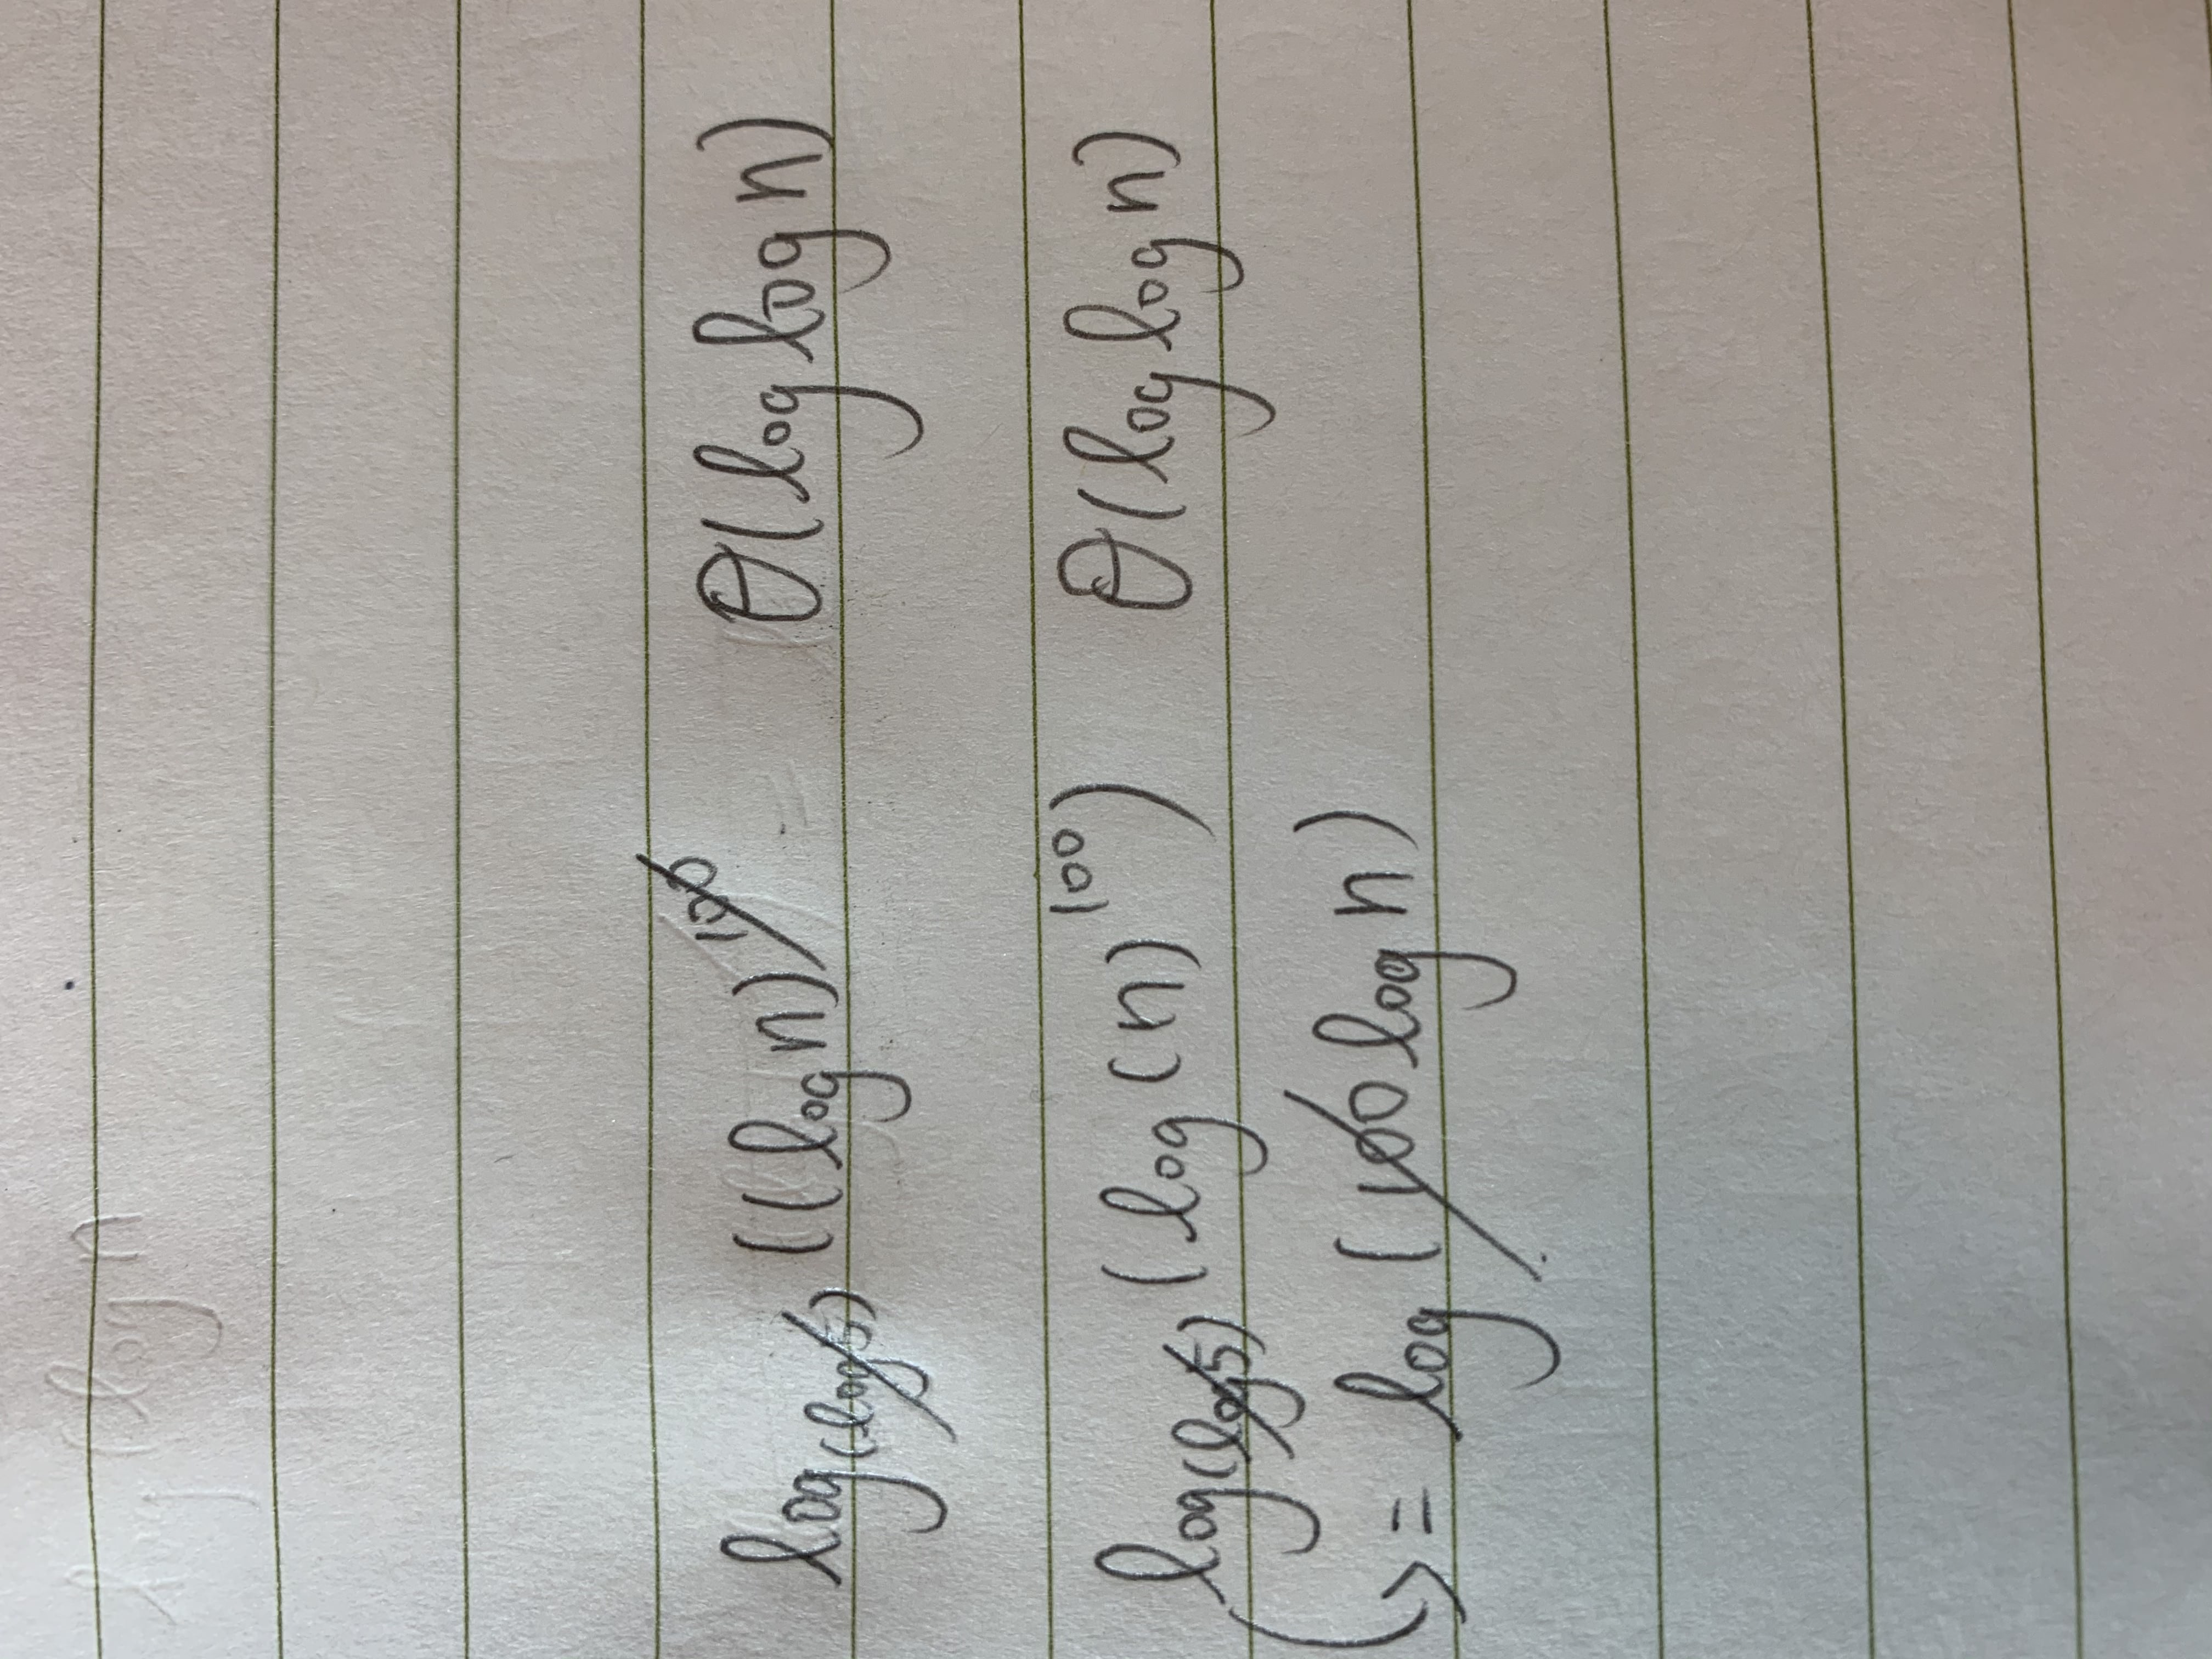 log (log n
log(log5) ((log n)^100 = θ(log log n)
log(log5) (log (n)^100) θ(log log n)
= log (100 log n)